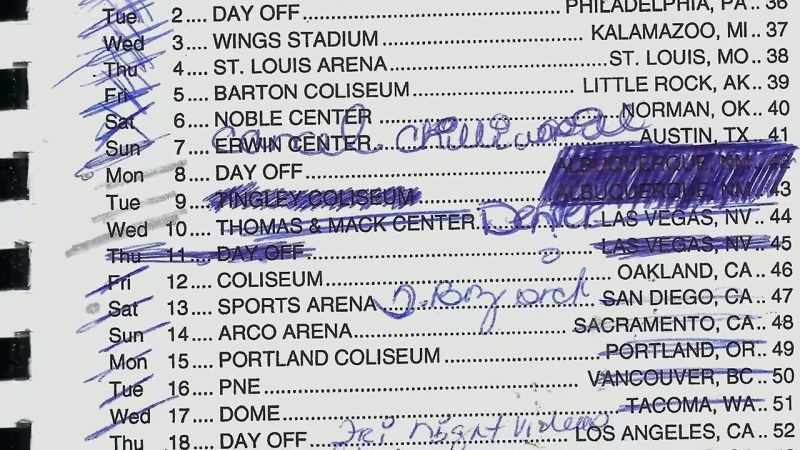 Tue 2.... DAY OFF PHILADELPHIA, PA.. 36
Wed 3.... WINGS STADIUM KALAMAZOO, MI.. 37
Thu 4.... ST. LOUIS ARENA ST. LOUIS, MO.. 38
Fri 5.... BARTON COLISEUM LITTLE ROCK, AK.. 39
Sat 6.... NOBLE CENTER NORMAN, OK.. 40
Sun 7.... ERWIN CENTER AUSTIN, TX.. 41
Mon 8.... DAY OFF ALBUQUERQUE, NM.. 42
Tue 9.... TINGLEY COLISEUM ALBUQUERQUE, NM.. 43
Wed 10.... THOMAS & MACK CENTER Denver LAS VEGAS, NV.. 44
Thu 11.... DAY OFF LAS VEGAS, NV.. 45
Fri 12.... COLISEUM OAKLAND, CA.. 46
Sat 13.... SPORTS ARENA SAN DIEGO, CA.. 47
Sun 14.... ARCO ARENA SACRAMENTO, CA.. 48
Mon 15.... PORTLAND COLISEUM PORTLAND, OR.. 49
Tue 16.... PNE VANCOUVER, BC.. 50
Wed 17.... DOME TACOMA, WA.. 51
Thu 18.... DAY OFF Fri night Videos LOS ANGELES, CA.. 52